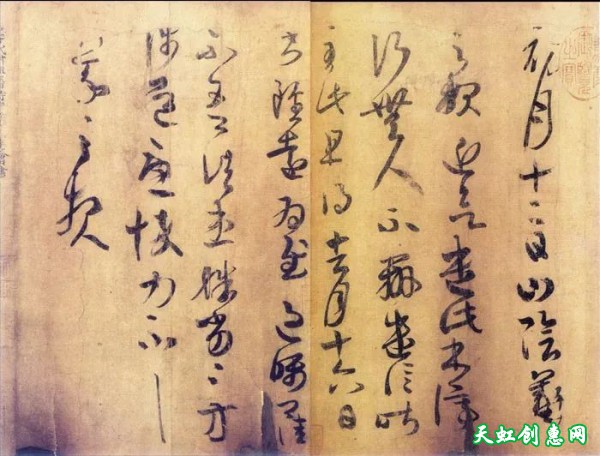 初月十二日山陰羲
之報近欲遣此書停
行無人不辦遣信昨
至此且得去月十六日
書雖遠為慰過囑卿佳
不吾諸患殊劣〻方
涉道憂悴力不具
羲之報
天虹创惠网